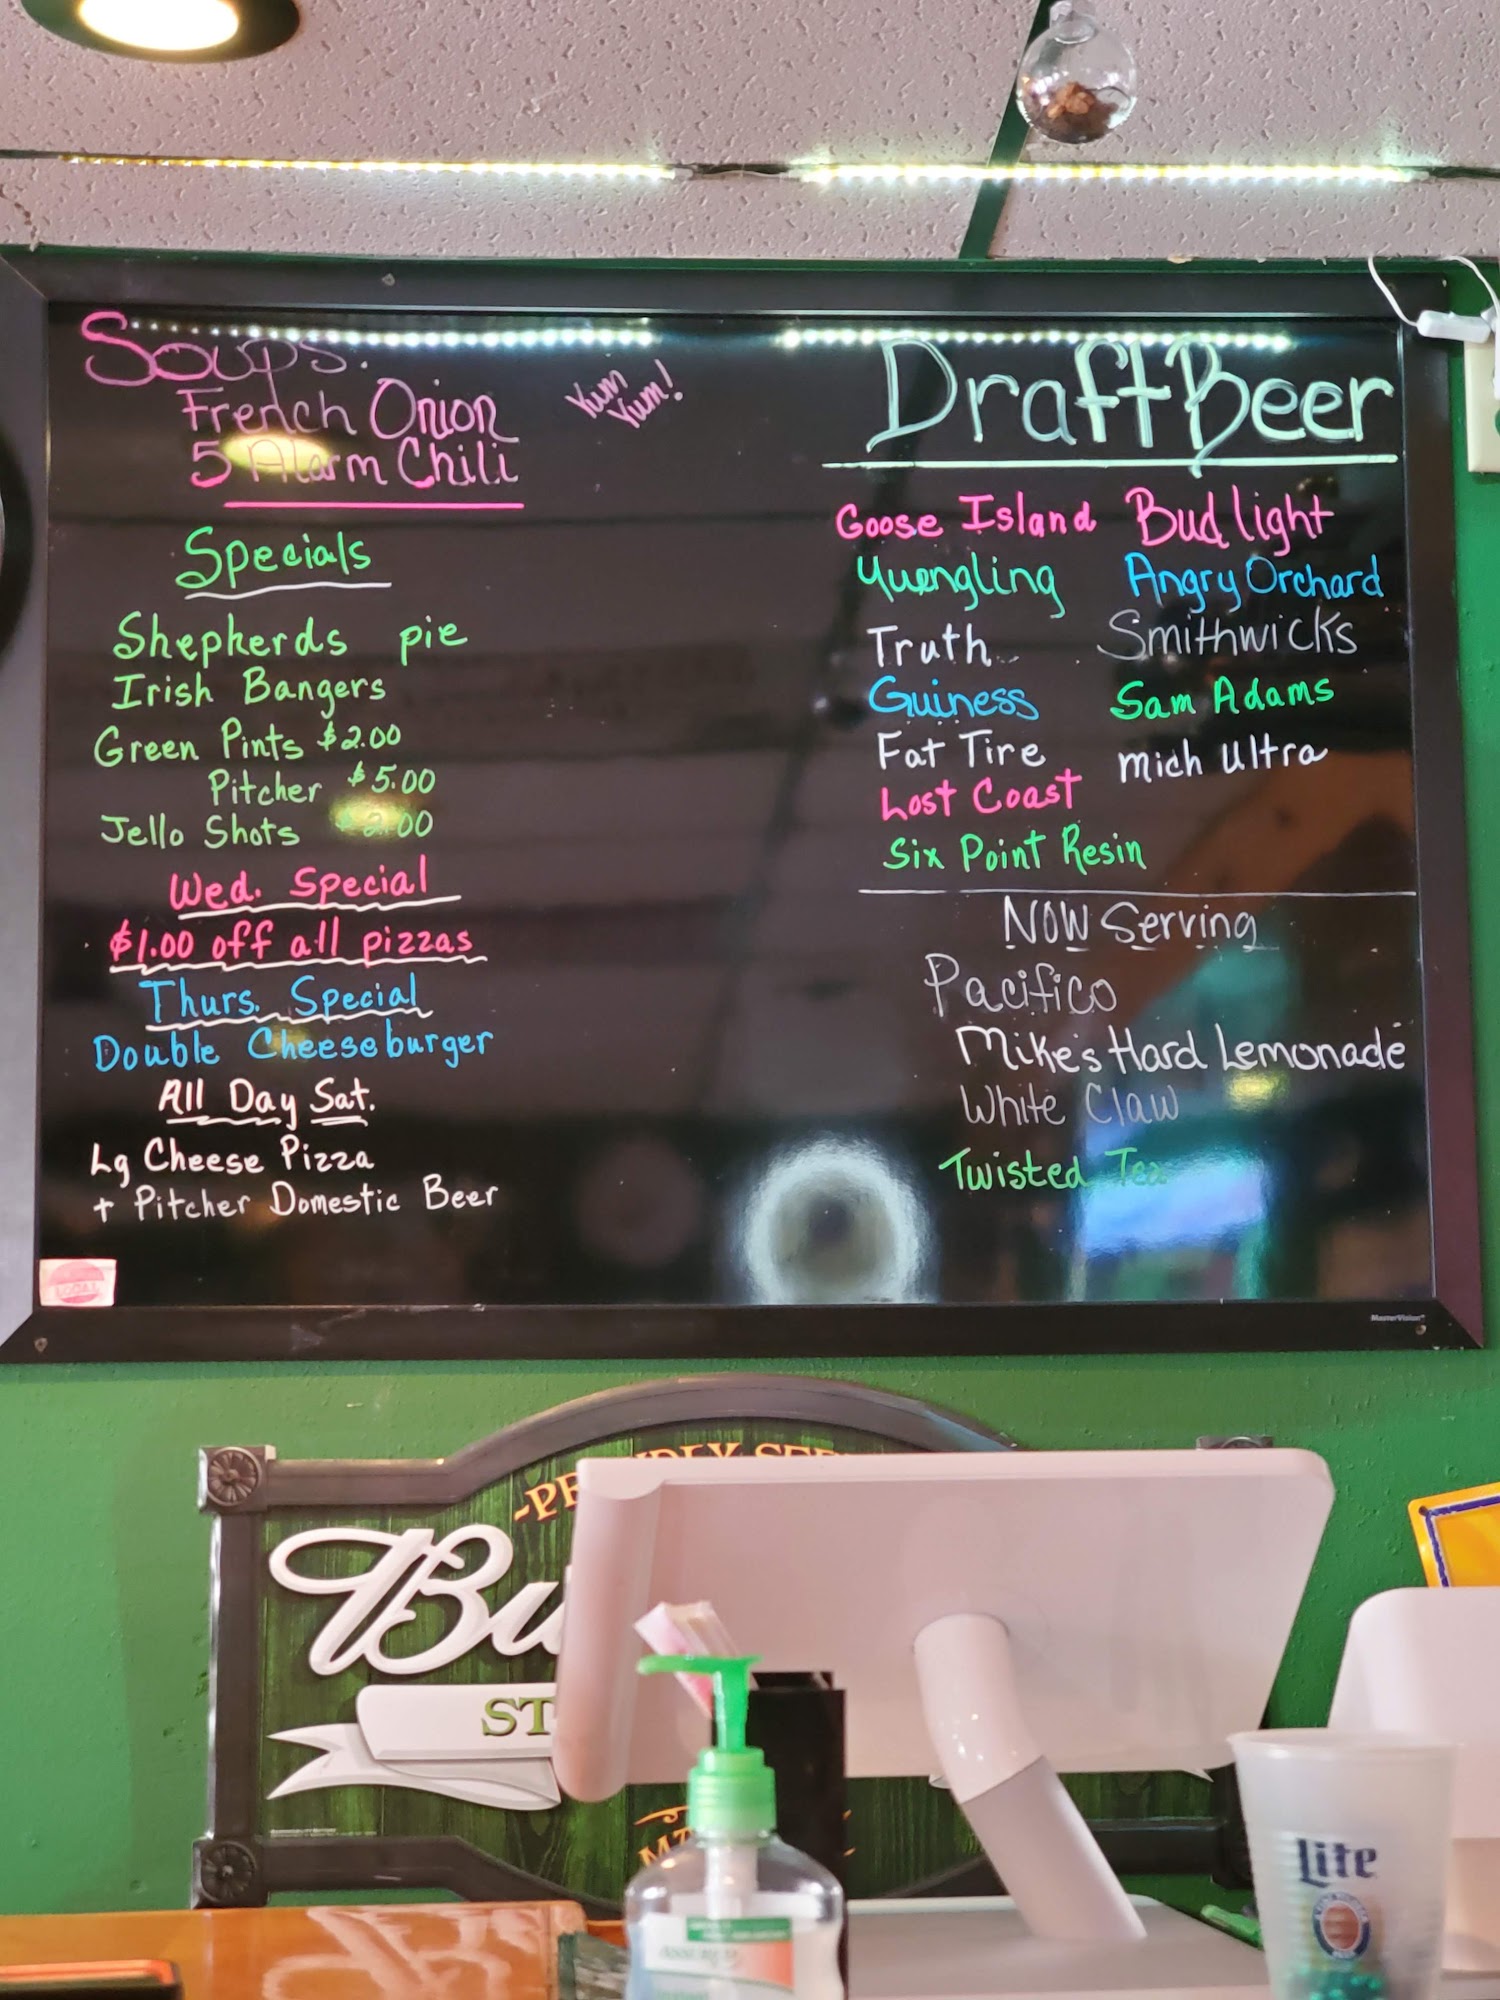 Soups.
French Onion
5 Alarm Chili
Yum
Yum!
Specials
Shepherds pie
Irish Bangers
Green Pints $2.00
Pitcher $5.00
Jello Shots $2.00
Wed. Special
$1.00 off all pizzas
Thurs. Special
Double Cheeseburger
All Day Sat.
Lg Cheese Pizza
+ Pitcher Domestic Beer
Draft Beer
Goose Island Bud light
Yuengling Angry Orchard
Truth Smithwicks
Guiness Sam Adams
Fat Tire Mich Ultra
Lost Coast
Six Point Resin
NOW Serving
Pacifico
Mike's Hard Lemonade
White Claw
Twisted Tea
MasterVision
Lite